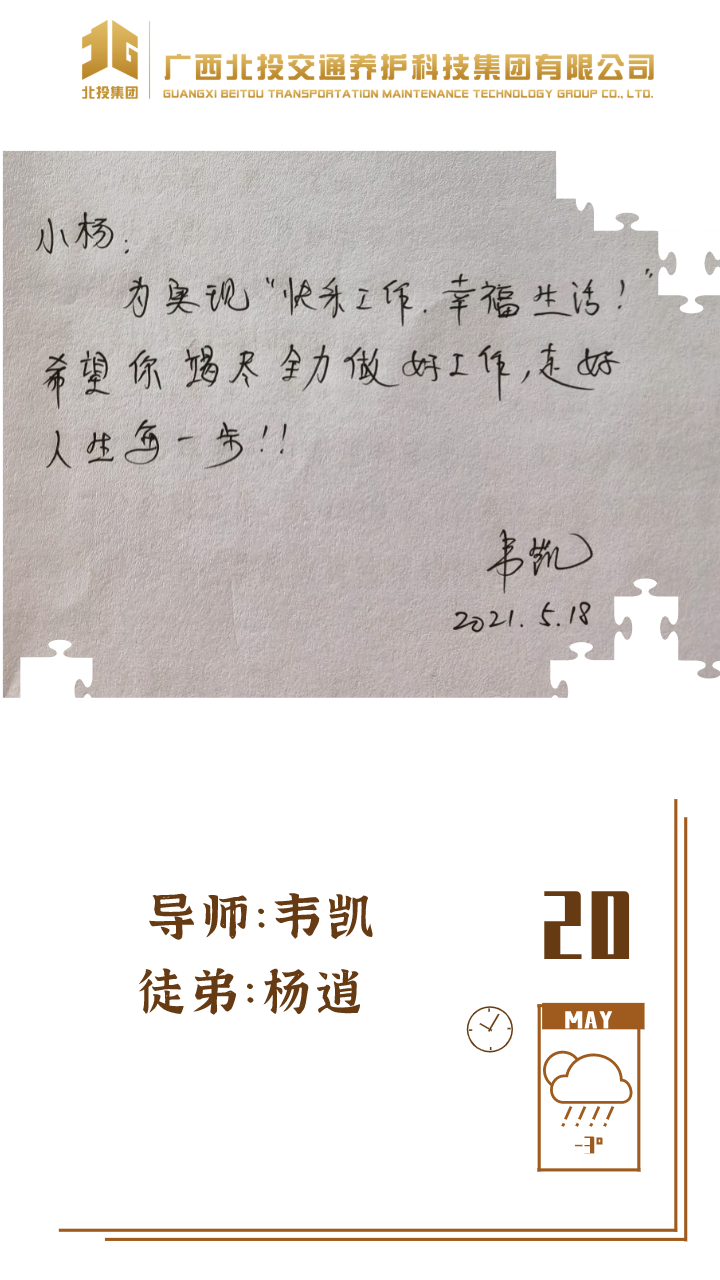 北投集团
广西北投交通养护科技集团有限公司
GUANGXI BEITOU TRANSPORTATION MAINTENANCE TECHNOLOGY GROUP CO., LTD.
小杨:
为实现“快乐工作.幸福生活!”
希望你竭尽全力做好工作,走好
人生每一步!!
韦凯
2021.5.18
导师:韦凯
徒弟:杨逍
20
MAY
-3°